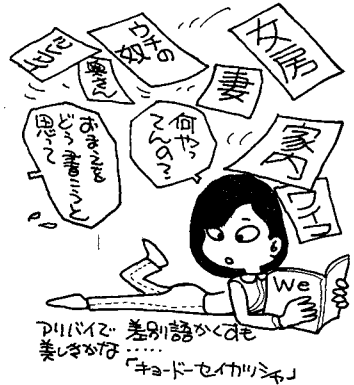 女房
ウチの
奴
奥さん
妻
家内
ワイフ
何やっ
てんの?
おまえを
どう書こうと
思って
We
アリバイで 差別語かくすも
美しきかな……
「キョードーセイカツシャ」